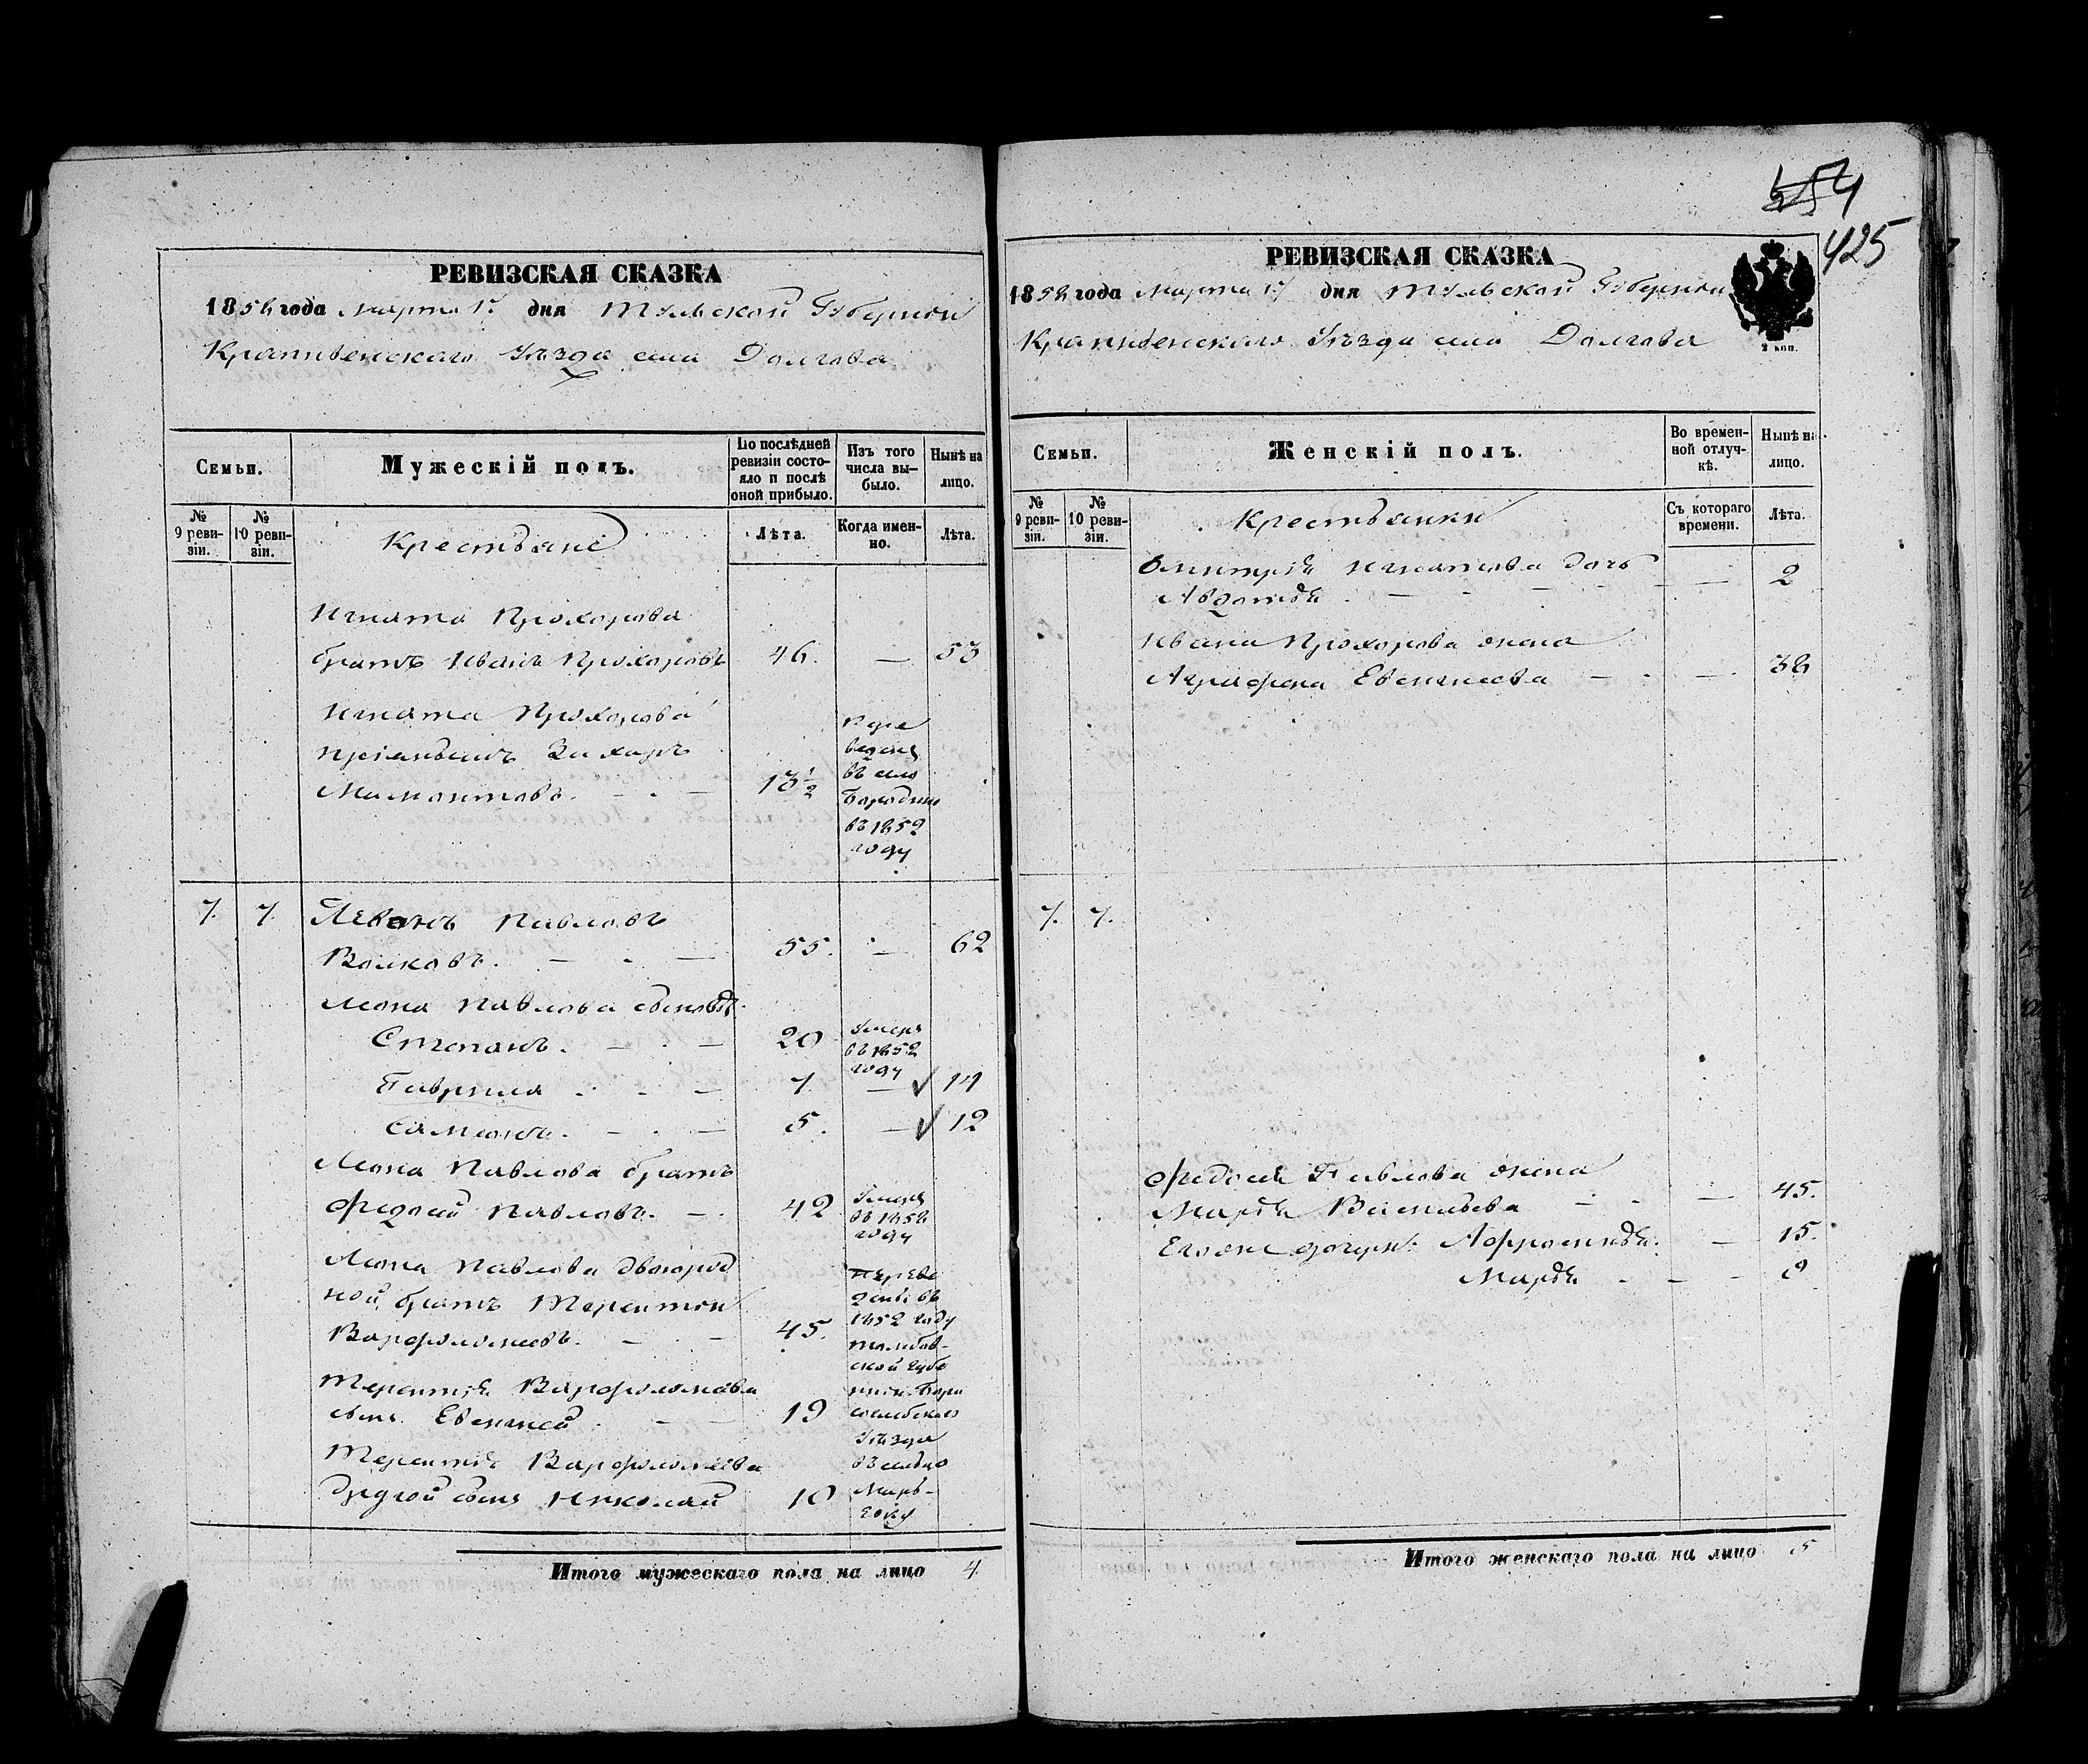 454
425
РЕВИЗСКАЯ СКАЗКА
1858 года Марта 17 дня Тульской Губернии
Крапивенскаго Уѣзда села Долгова
Семьи.
Мужескій полъ.
По послѣдней ревизіи состояло и послѣ оной прибыло.
Изъ того числа выбыло.
Нынѣ на лицо.
№ 9 ревизіи.
№ 10 ревизіи.
Крестьяне
Лѣта.
Когда именно.
Лѣта.
Игната Прохорова
братъ Иванъ Прохоровъ 46. — 53
Игната Прохорова
пріемышъ Захаръ
Мамонтовъ. 13½
Переведенъ въ село Бородино въ 1852 году
7. 7. Левонъ Павловъ
Волковъ. 55. — 62
Леона Павлова сыновья
Степанъ. 20 Умеръ въ 1852 году
Гаврила 7. — 14
Самионъ. 5. — 12
Леона Павлова братъ
Федосей Павловъ. 42 Умеръ въ 1858 году
Леона Павлова двоюрод
ной братъ Терентей
Варфоломеевъ. 45.
Терентія Варфоломеева
сынъ Евсигней 19
Терентія Варфоломеева
другой сынъ Николай 10
Переведены въ 1852 году Тамбовской губернии Борисоглебскаго Уѣзда въ сельцо Марьевку
Итого мужескаго пола на лицо 4.
РЕВИЗСКАЯ СКАЗКА
1858 года Марта 17 дня Тульской Губернии
Крапивенскаго Уѣзда села Долгова
2 коп.
Семьи.
Женскій полъ.
Во временной отлучкѣ.
Нынѣ на лицо.
№ 9 ревизіи.
№ 10 ревизіи.
Крестьянки
Съ котораго времени.
Лѣта.
Дмитрія Игнатова дочь
Авдотья — 2
Ивана Прохорова жена
Аграфена Евсигнеева — 38
7. 7.
Федосея Павлова жена
Марья Васильева — 45.
Егоже дочери: Афросинья. — 15.
Марья
Итого женскаго пола на лицо 5